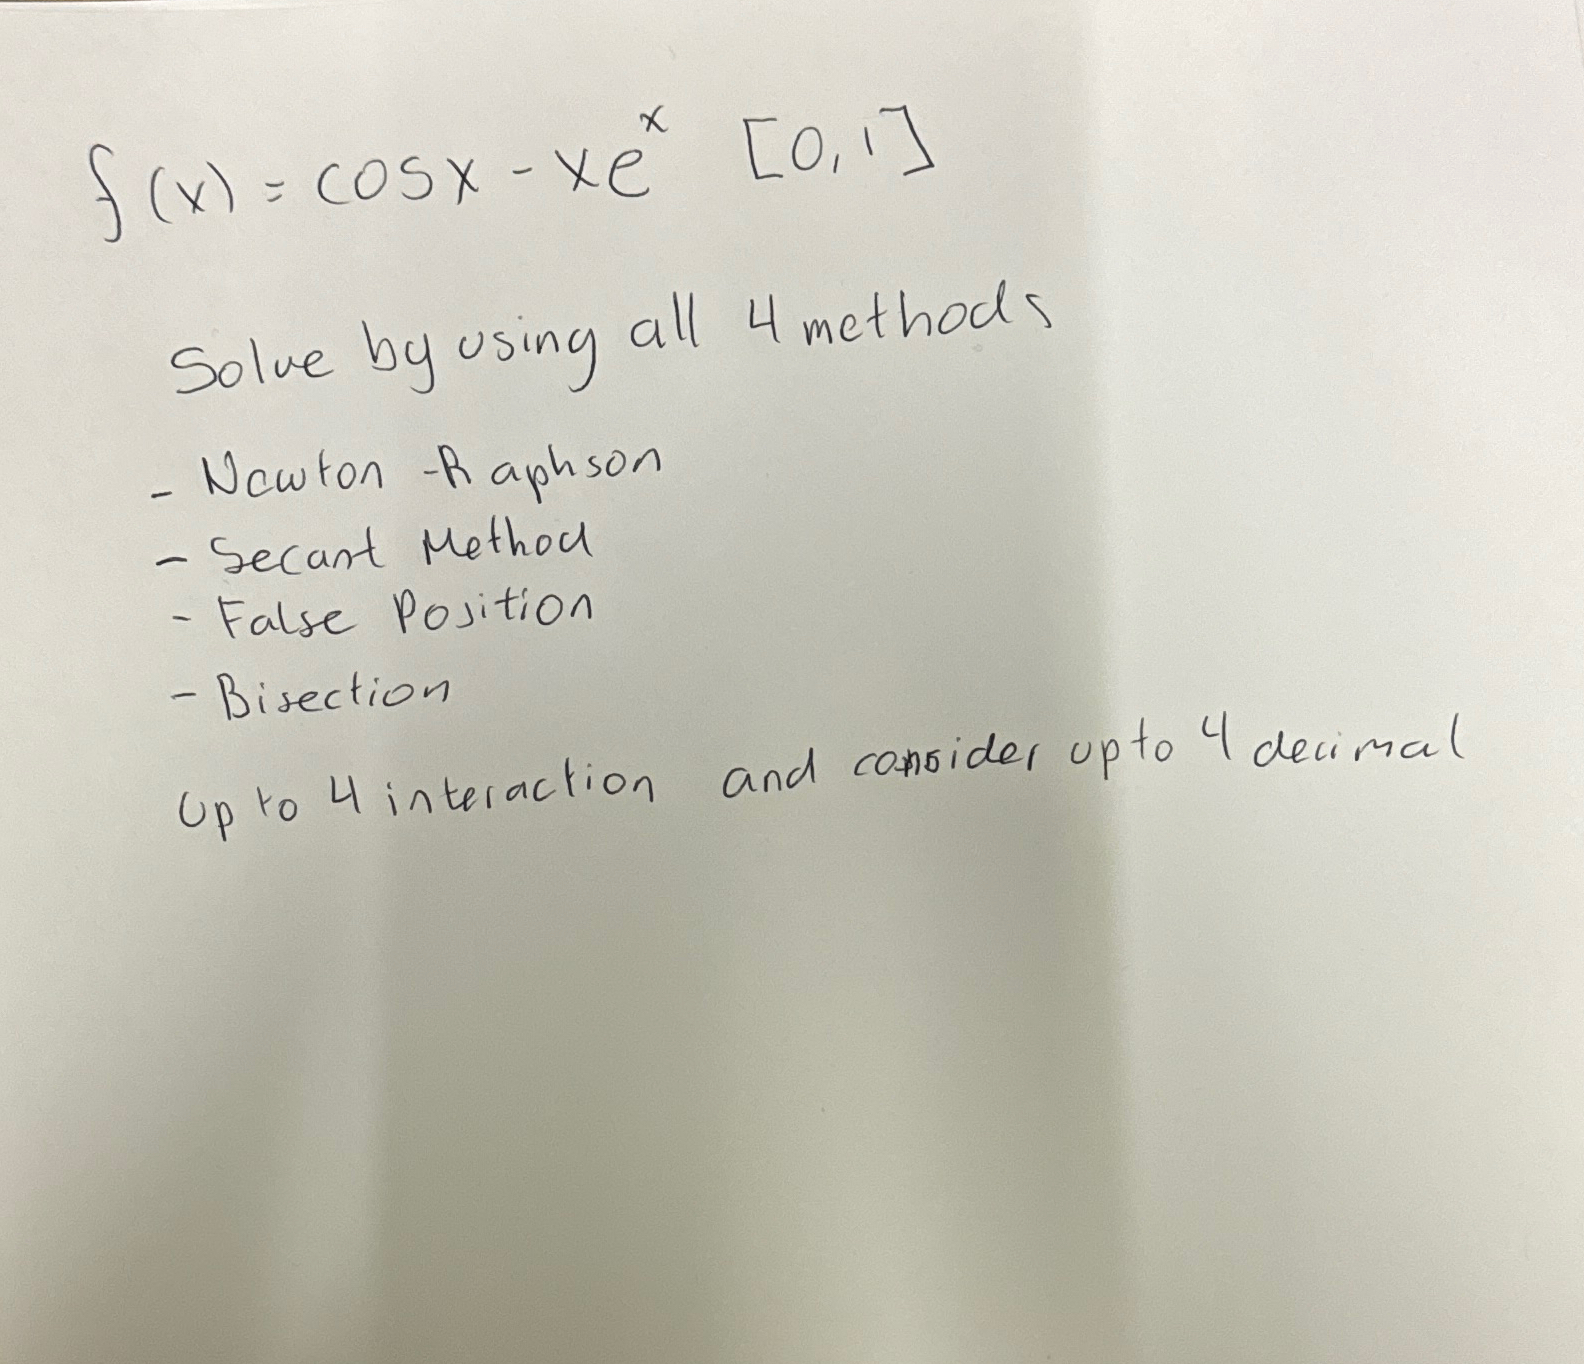 f(x) = cosx - xe^x [0,1]
Solve by using all 4 methods
- Newton -Raphson
- Secant Method
- False Position
- Bisection
Up to 4 interaction and consider upto 4 decimal